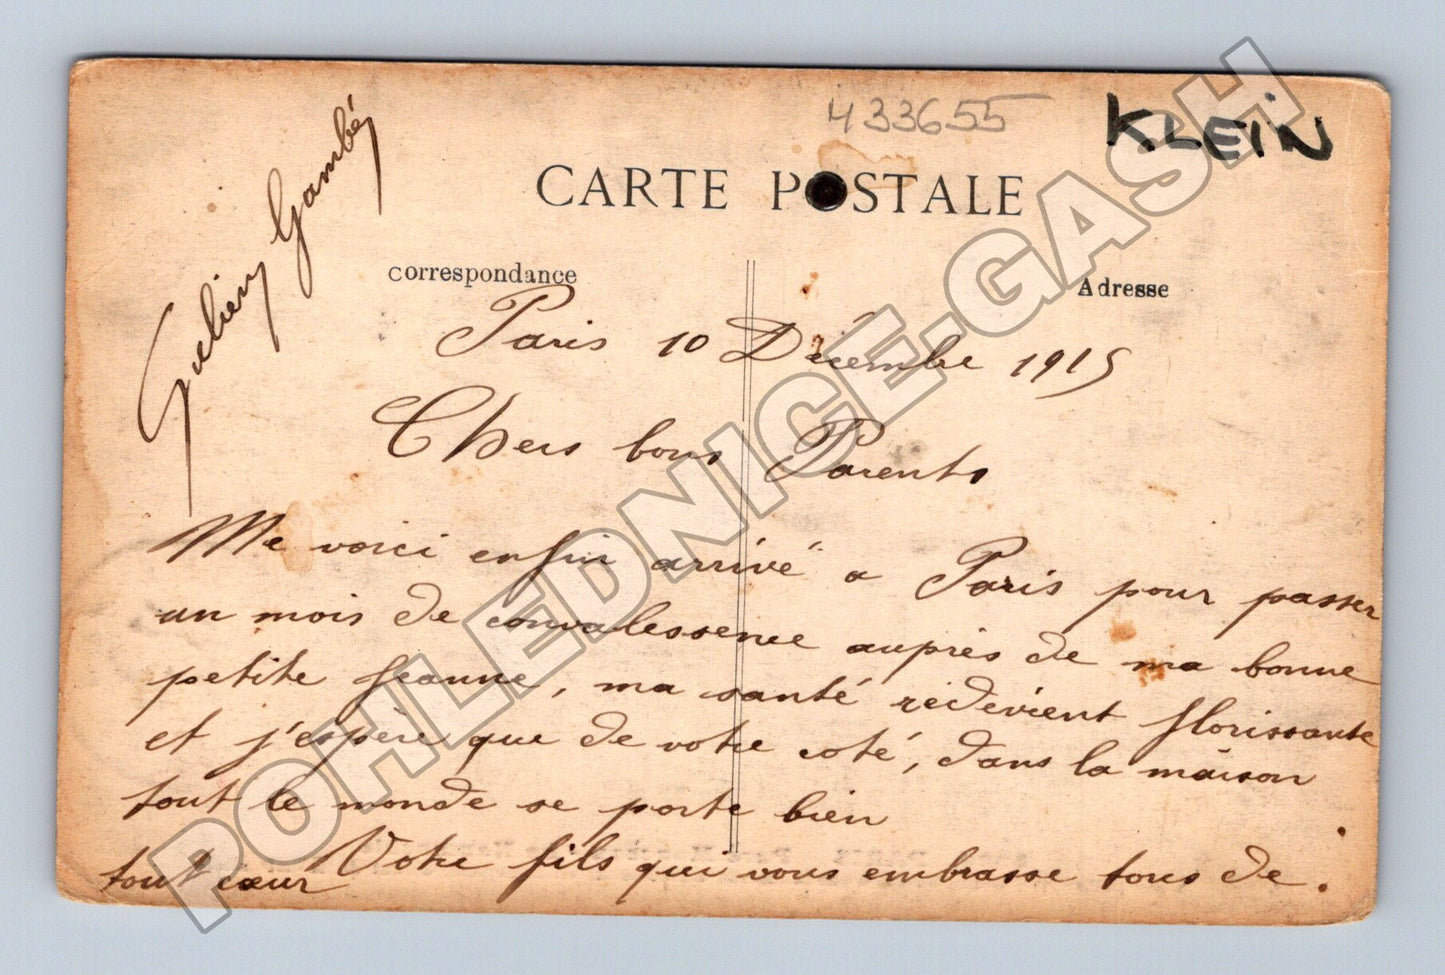 433655
KLEiN
CARTE POSTALE
correspondance
Adresse
Paris 10 Décembre 1915
Chers bons Parents
Me voici enfin arrivé a Paris pour passer
un mois de convalessence auprès de ma bonne
petite Jeanne, ma santé redevient florissante
et j'espère que de votre coté, dans la maison
tout le monde se porte bien
Votre fils qui vous embrasse tous de.
tout cœur
Gambéy
POHLEDNICE-GASH